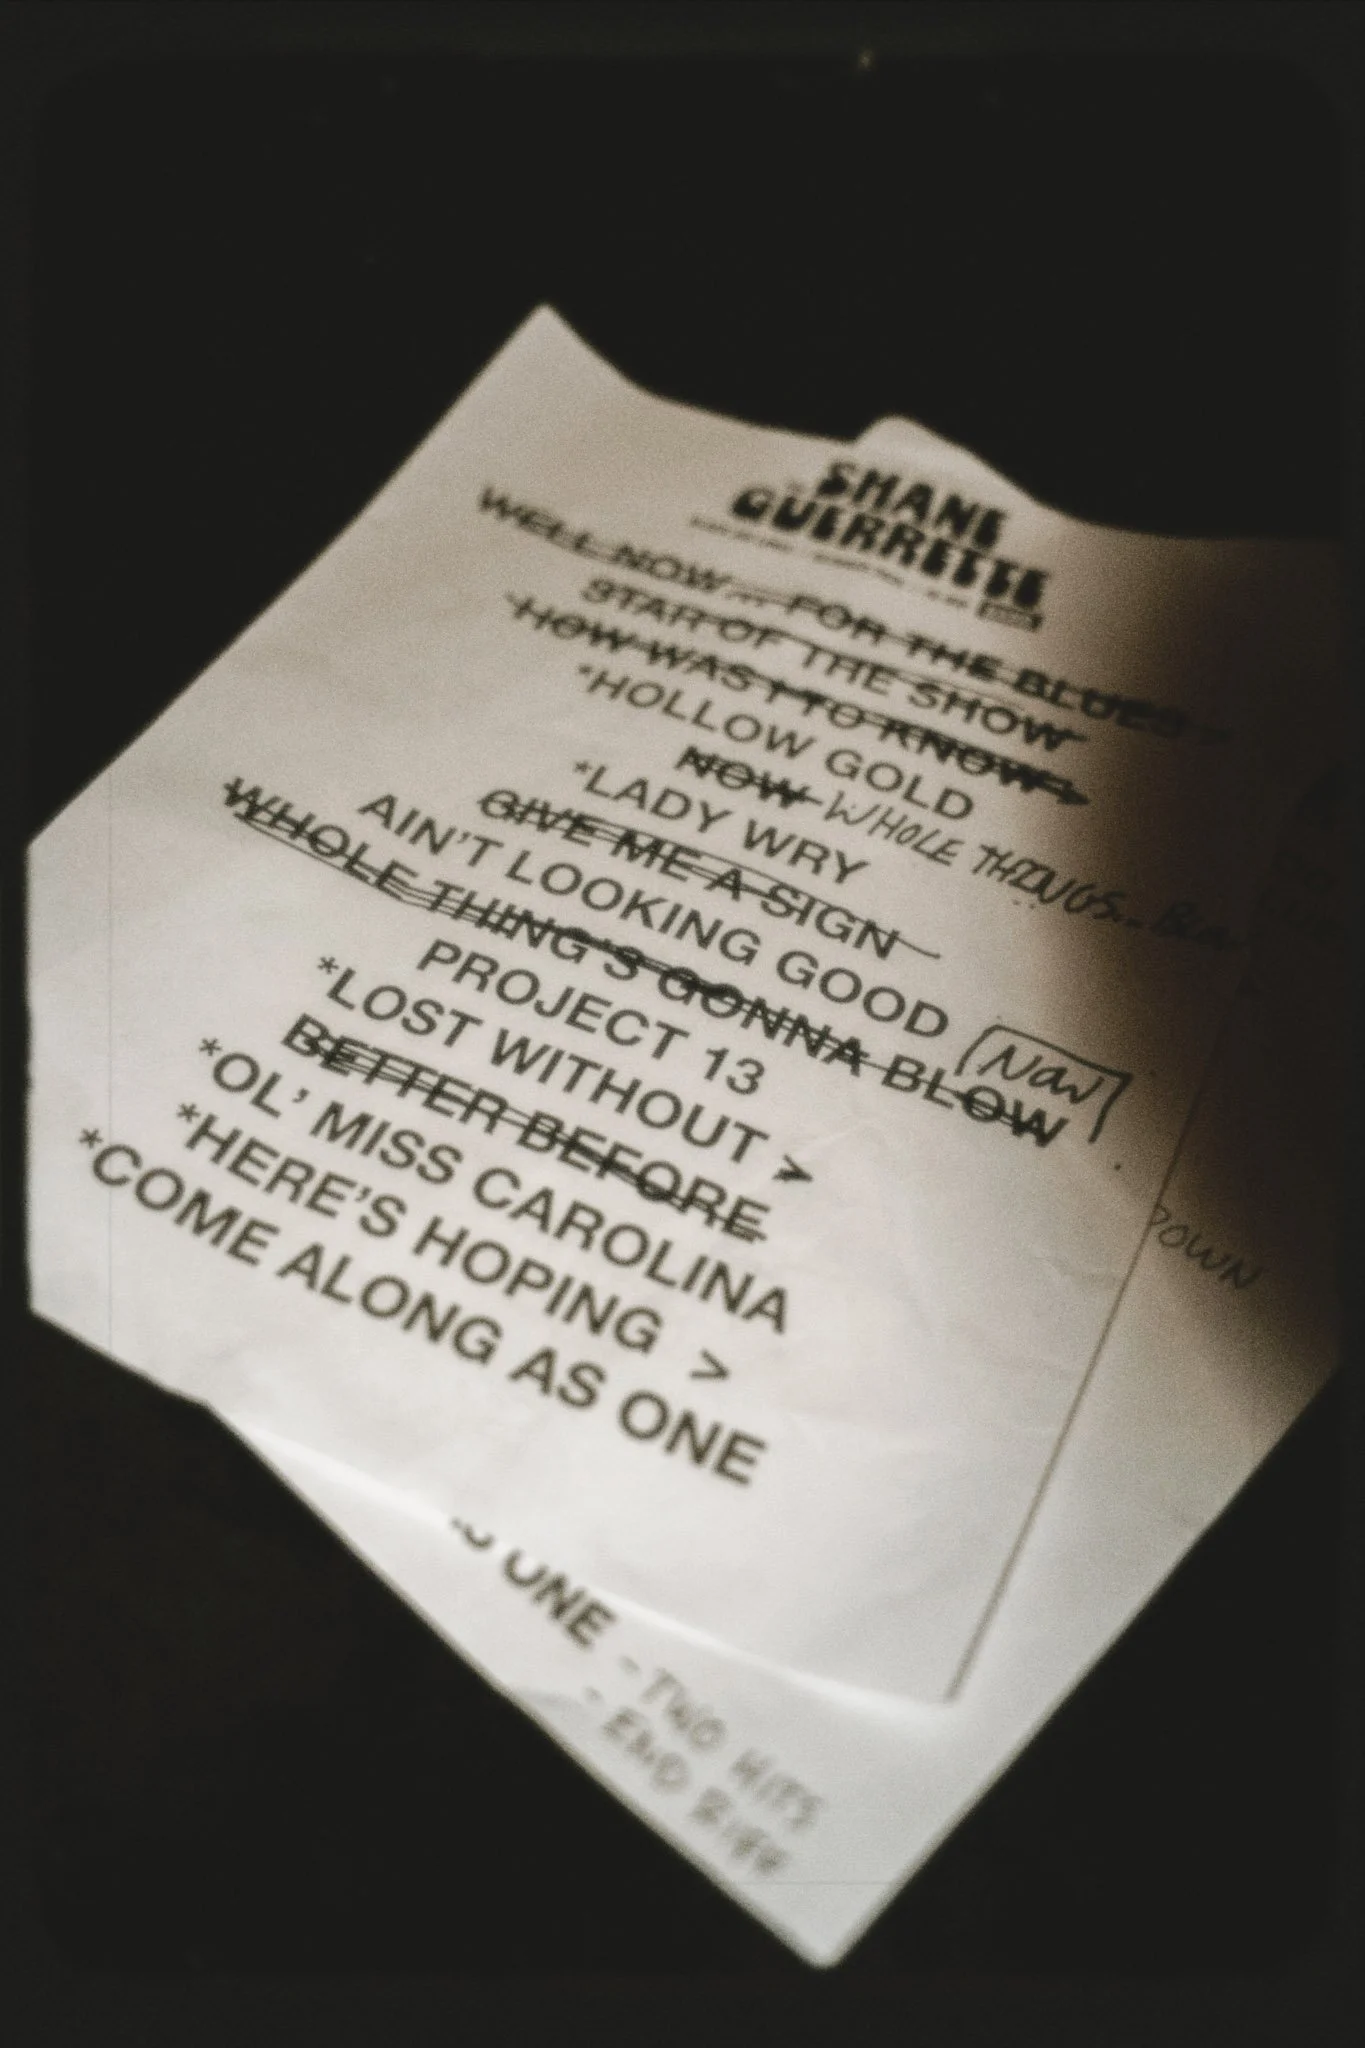 SHANE
GUERRETTE
WELL NOW... FOR THE BLUES
STAR OF THE SHOW
*HOW WAS I TO KNOW
*HOLLOW GOLD
NOW WHOLE THINGS...
*LADY WRY
GIVE ME A SIGN
AIN'T LOOKING GOOD
WHOLE THING'S GONNA BLOW
NOW
PROJECT 13
*LOST WITHOUT >
BETTER BEFORE
*OL' MISS CAROLINA
*HERE'S HOPING >
*COME ALONG AS ONE
DOWN
ONE - TWO HITS
- END RIFF